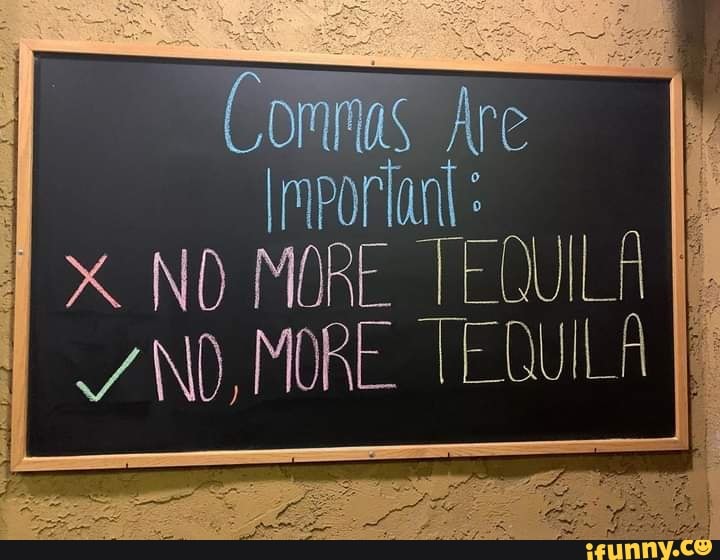 Commas Are
Important:
✗ NO MORE TEQUILA
✓ NO, MORE TEQUILA
ifunny.co